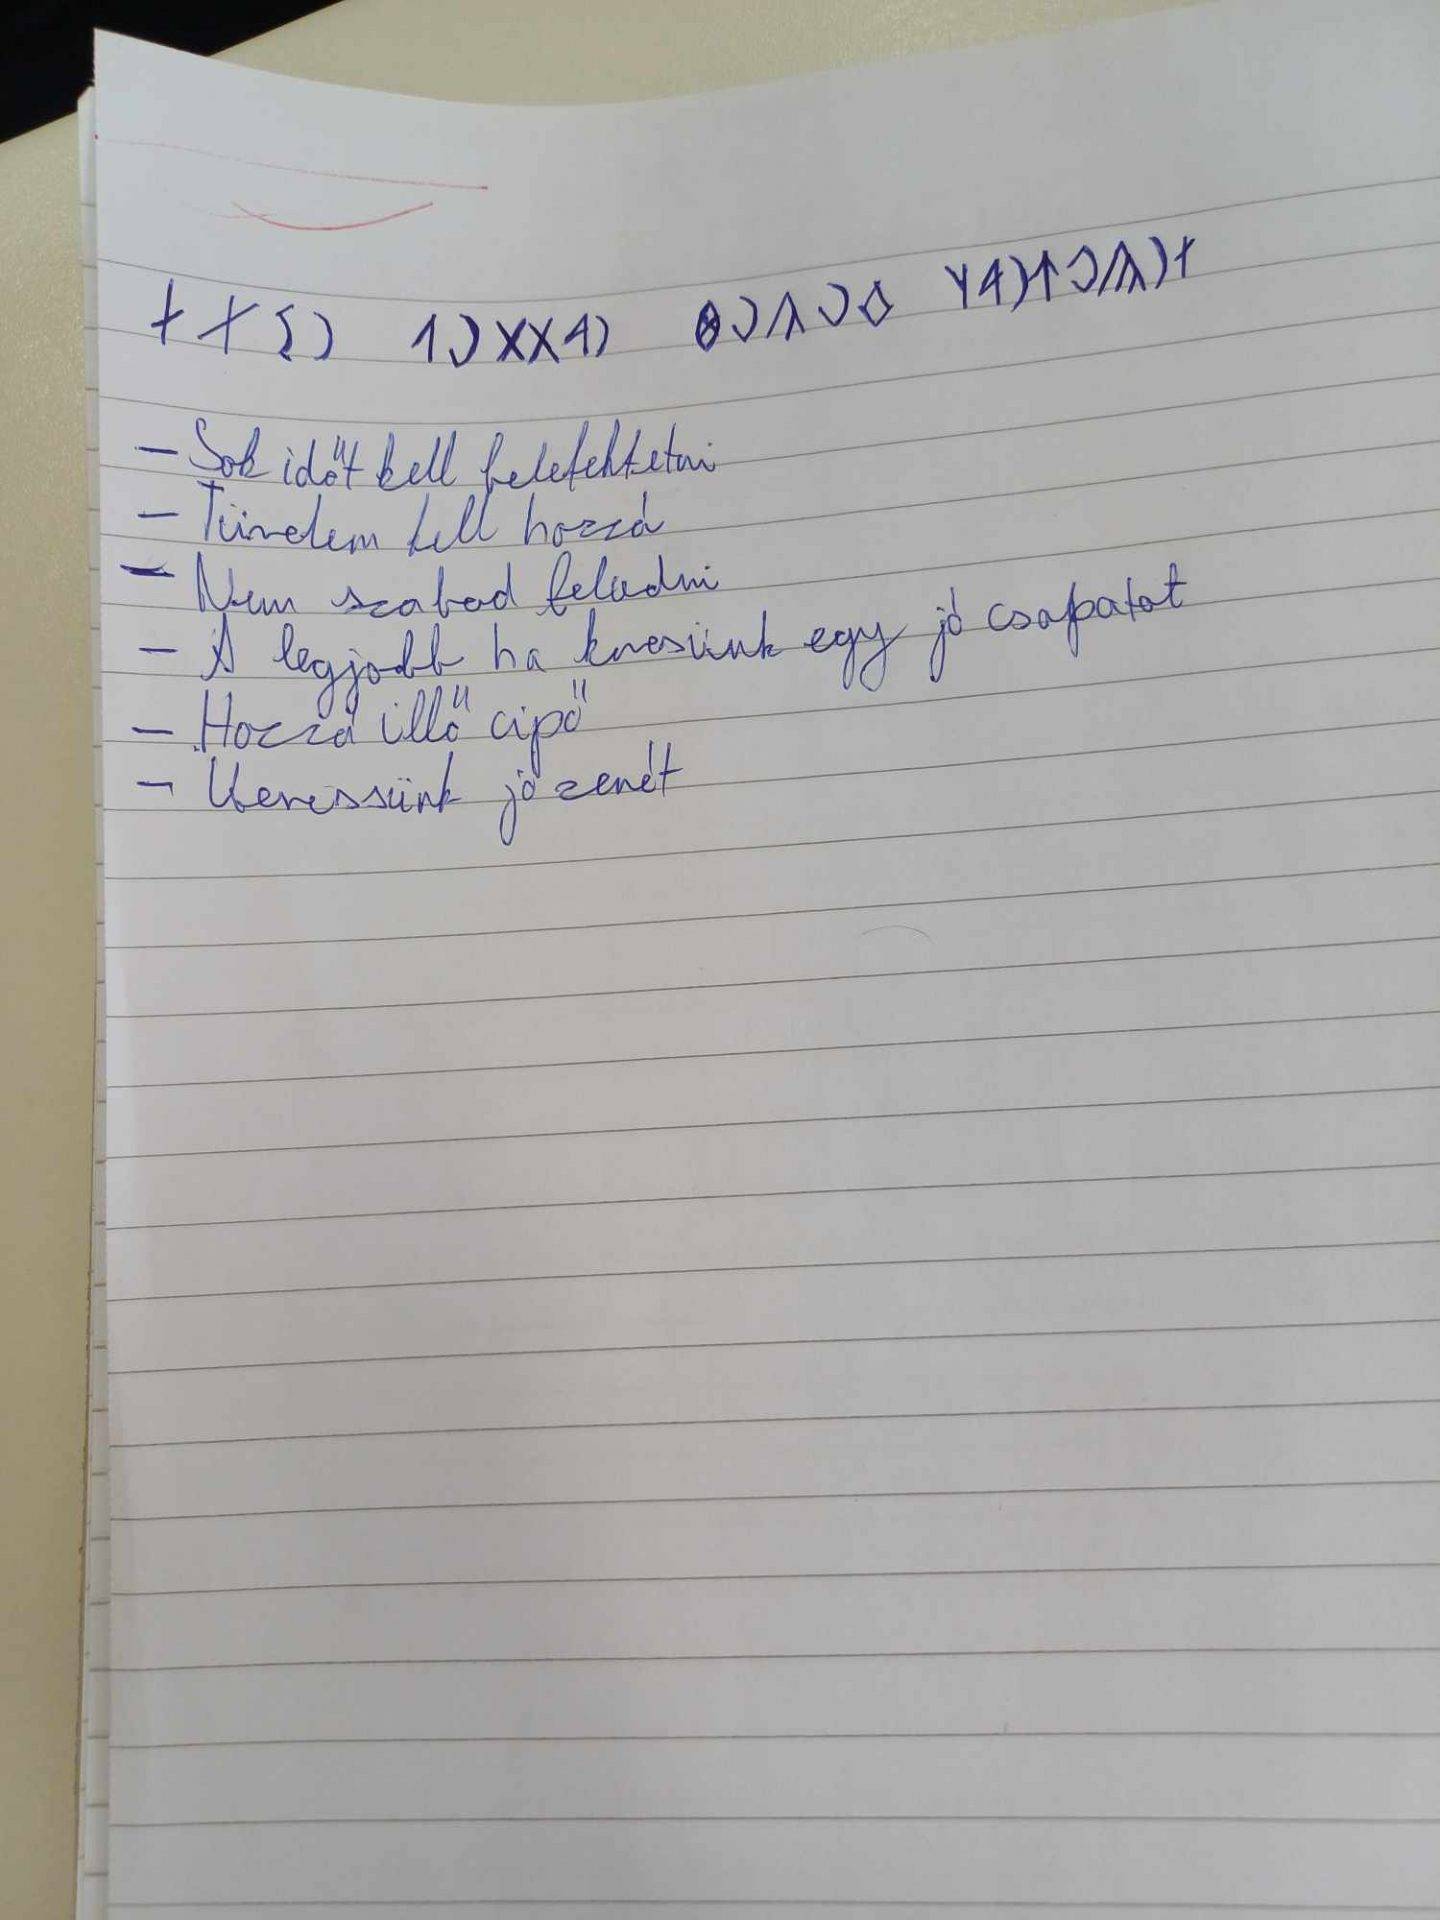 - Sok időt kell belefektetni
- Türelem kell hozzá
- Nem szabad feladni
- A legjobb ha keresünk egy jó csapatot
- Hozzá illő cipő
- Keressünk jó zenét